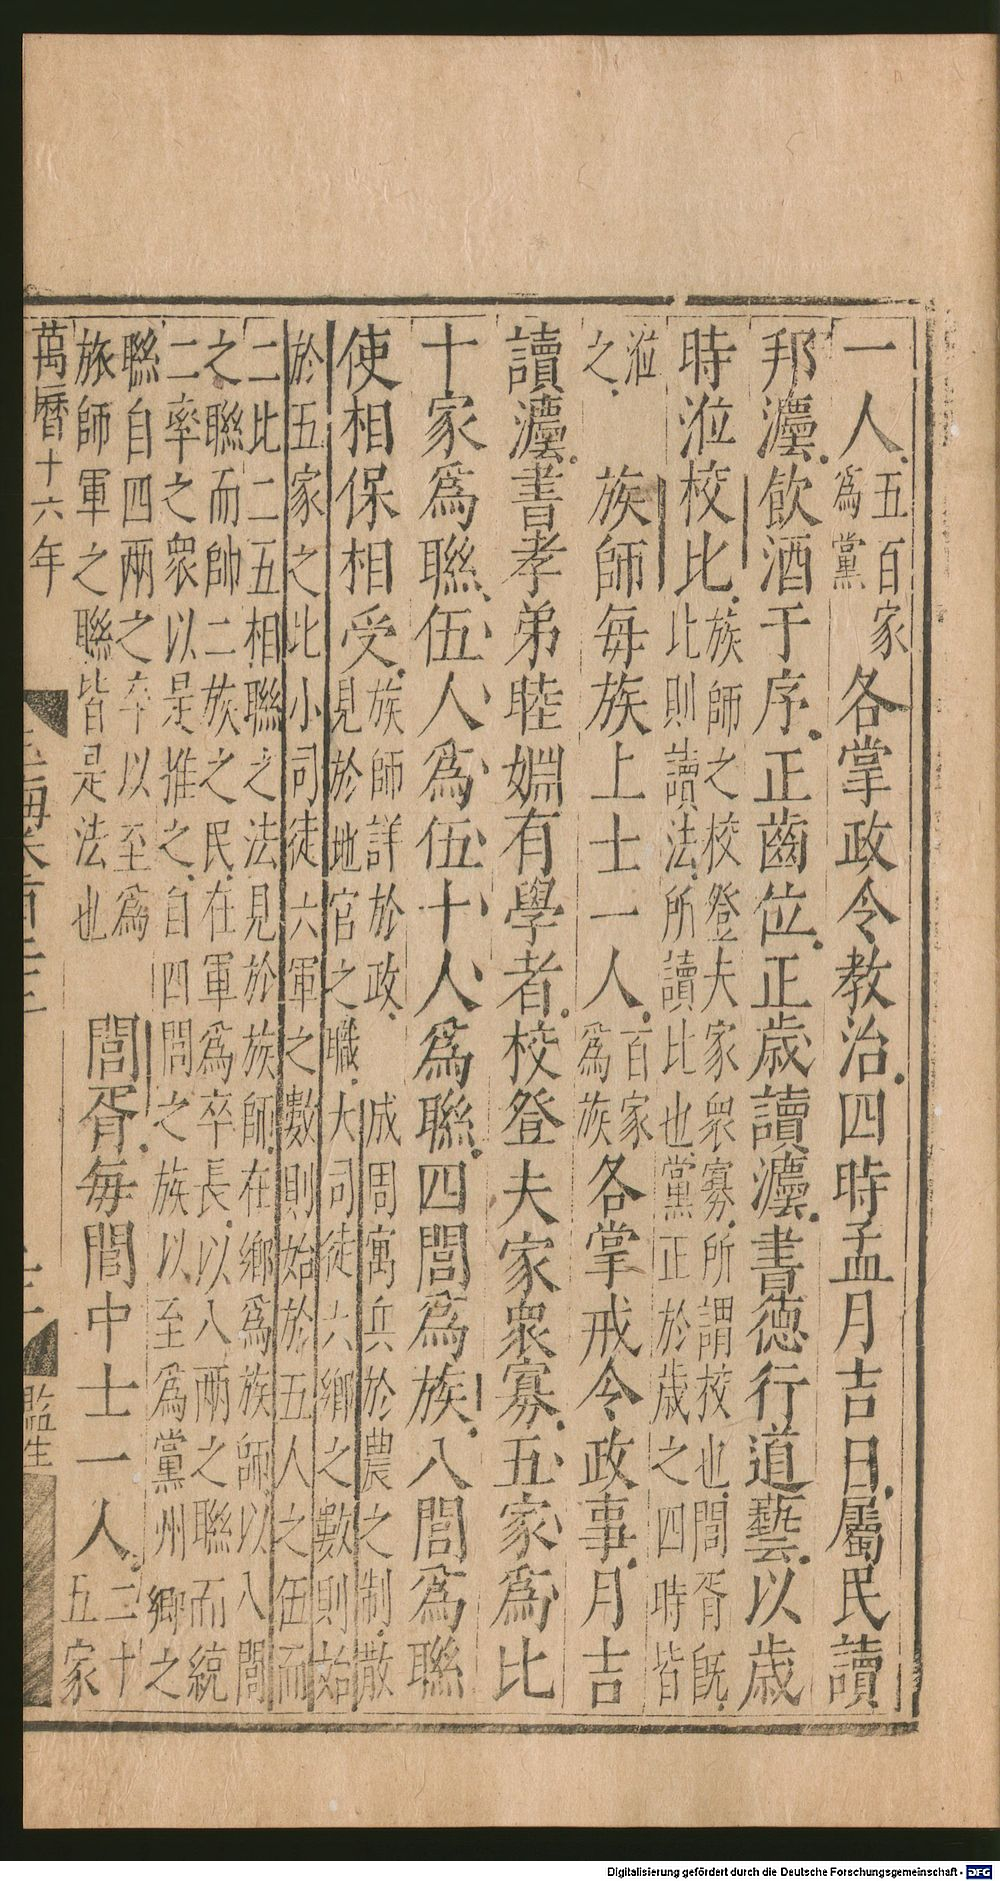 一人五百家為黨各掌政令教治四時孟月吉日屬民讀
邦灋飲酒于序正齒位正歲讀灋書德行道藝以歲
時涖校比族師之校登夫家衆寡所謂校也閭胥旣比則讀法所讀比也黨正於歲之四時皆
涖之族師每族上士一人百家為族各掌戒令政事月吉
讀灋書孝弟睦婣有學者校登夫家衆寡五家爲比
十家爲聯伍人爲伍十人爲聯四閭爲族八閭爲聯
使相保相受族師詳於政成周寓兵於農之制散見於地官之職大司徒六鄉之數則始
於五家之比小司徒六軍之數則始於五人之伍而二比二五相聯之法見於族師在鄉為族師以八閭
之聯而帥二族之民在軍為卒長以八兩之聯而統二率之衆以是推之自四閭之族以至為黨州鄉之
聯自四兩之卒以至為旅師軍之聯皆是法也閭胥每閭中士一人二十五家
萬曆十六年
監生
Digitalisierung gefördert durch die Deutsche Forschungsgemeinschaft - DFG